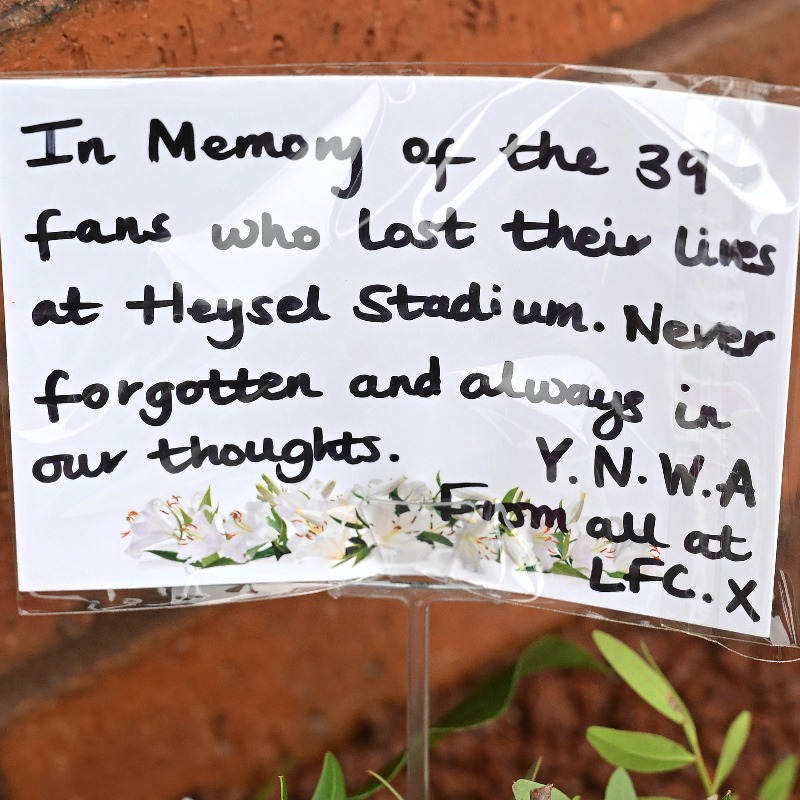 In Memory of the 39
fans who lost their lives
at Heysel Stadium. Never
forgotten and always in
our thoughts.
Y.N.W.A
From all at
LFC. X